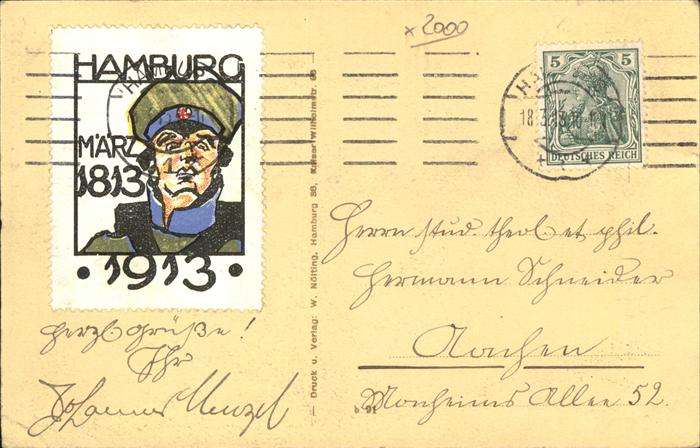 × 2000
HAMBURG
MÄRZ
1813
• 1913 •
Herzl. Grüße!
Ihr
Johannes Menzel
Druck u. Verlag: W. Nölting, Hamburg 36, Kaiser Wilhelmstr. 
b 91
5 5
DEUTSCHES REICH
HA
18.3.13
Herrn stud. theol. et phil.
Hermann Schneider
Aachen
Monheims Allee 52.